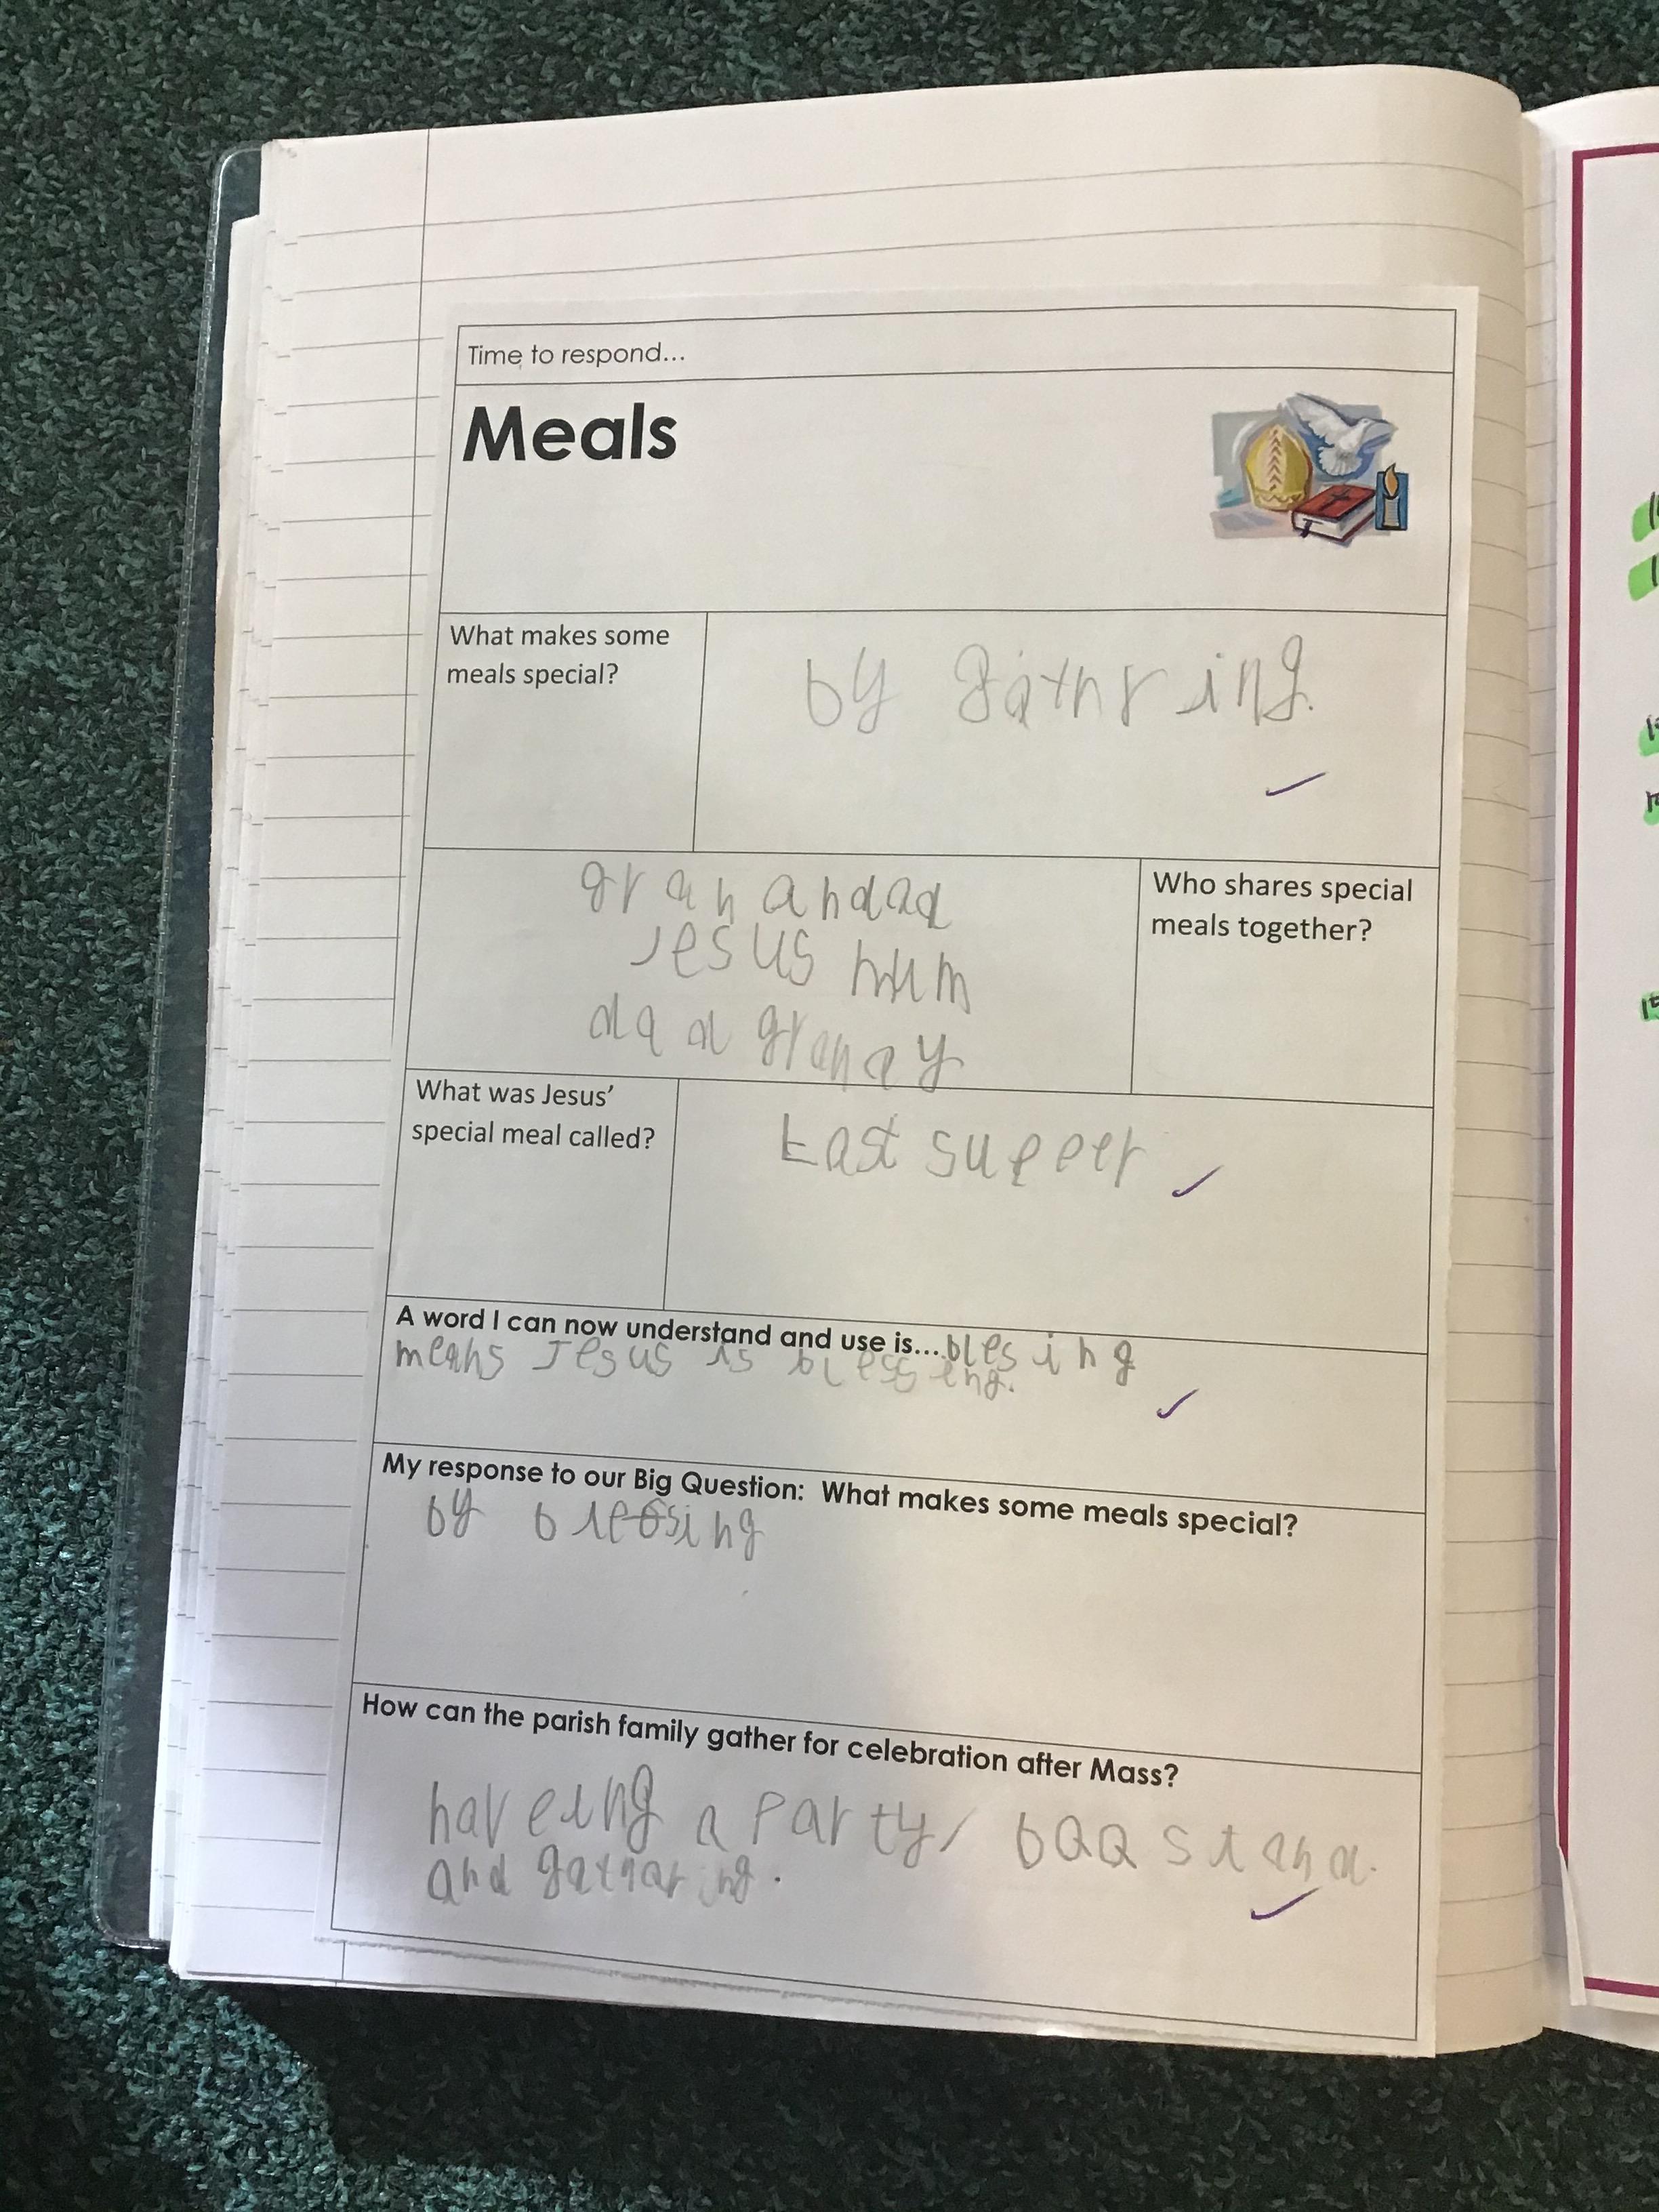 Time to respond...
Meals
What makes some
meals special?
by gathring.
granandad
Jesus mum
dad granay
Who shares special
meals together?
What was Jesus'
special meal called?
Last supeer
A word I can now understand and use is... blesing
means Jesus is blesseing.
My response to our Big Question: What makes some meals special?
by blessing
How can the parish family gather for celebration after Mass?
haveeing a party/ bQQ stand.
and gatharing.